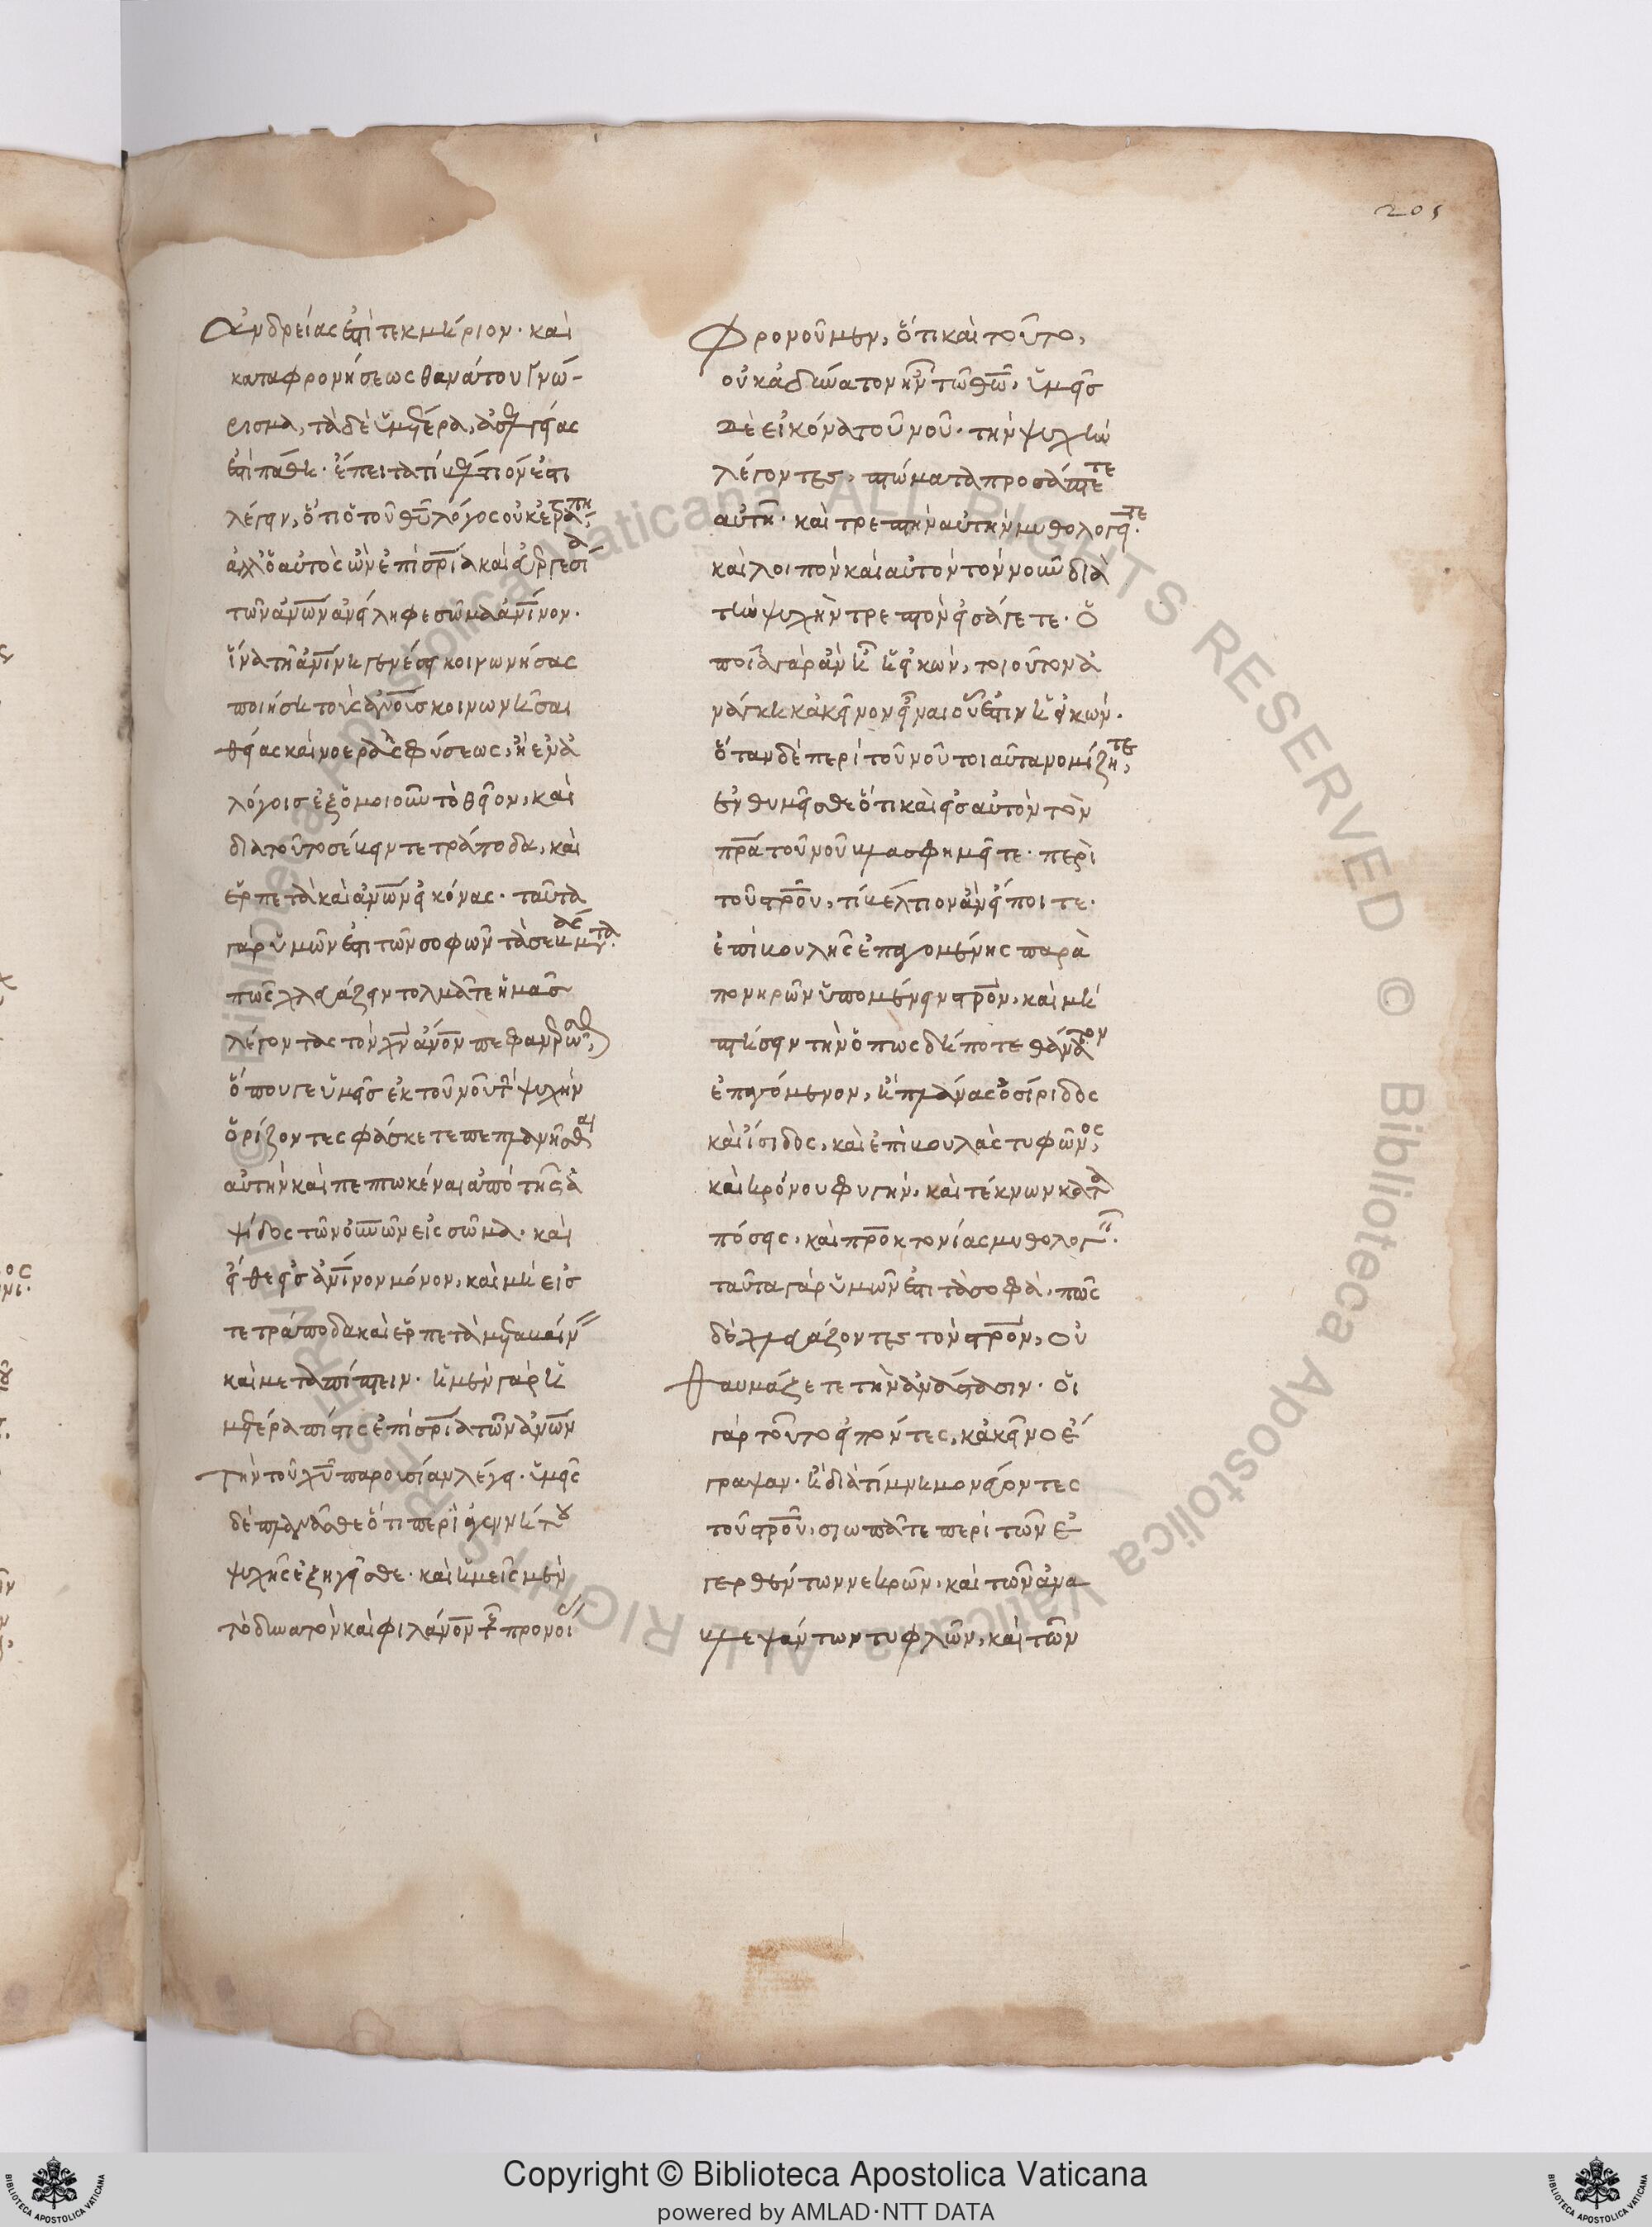 205
ἀνδρείας ἐστὶ τεκμήριον· καὶ
καταφρονήσεως θανάτου γνώ-
ρισμα, τὰ δὲ ὑμέτερα, ἀσελγείας
ἐστὶ πάθη· ἔπειτα τί βέλτιόν ἐστι
λέγειν, ὅτι ὁ τοῦ θυ λόγος οὐκ ἐτράπη,
ἀλλ' ὁ αὐτὸς ὢν ἐπὶ σρίᾳ καὶ εὐεργεσίᾳ
τῶν ανων ἀνείληφε σῶμα ανινον·
ἵνα τῇ ανινη γενέσει κοινωνήσας
ποιήσῃ τοὺς ανους κοινωνῆσαι
θείας καὶ νοερᾶς φύσεως, ἢ ἐν ἀ
λόγοις ἐξομοιοῦν τὸ θεῖον, καὶ
διὰ τοῦτο σέβειν τετράποδα, καὶ
ἑρπετὰ καὶ ανων εἰκόνας· ταῦτα
γὰρ ὑμῶν ἐστι τῶν σοφῶν τὰ σεβάσματα·
πῶς δὲ χλευάζειν τολμᾶτε ἡμᾶς
λέγοντας τὸν χν ανον πεφανερῶσθαι,
ὅπου γε ὑμεῖς ἐκ τοῦ νοῦ τὴν ψυχὴν
ὁρίζοντες φάσκετε πεπλανῆσθαι
αὐτὴν καὶ πεπτωκέναι ἀπὸ τῆς ἁ
ψίδος τῶν ουνων εἰς σῶμα· καὶ
εἴθε εἰς ανινον μόνον, καὶ μὴ εἰς
τετράποδα καὶ ἑρπετὰ μεταβαίνειν
καὶ μεταπίπτειν· ἡ μὲν γὰρ ἡ
μετέρα πίστις ἐπὶ σρίᾳ τῶν ανων
τὴν τοῦ χυ παρουσίαν λέγει· ὑμεῖς
δὲ πλανᾶσθε ὅτι περὶ ἀγεννήτου
ψυχῆς ἐξηγεῖσθε· καὶ ἡμεῖς μὲν
τὸ δυνατὸν καὶ φιλάνον τῆς προνοίας
φρονοῦμεν, ὅτι καὶ τοῦτο,
οὐκ ἀδύνατον ἦν τῷ θω, ὑμεῖς
δὲ εἰκόνα τοῦ νοῦ· τὴν ψυχὴν
λέγοντες, πτώματα προσάπτετε
αὐτῇ· καὶ τρεπτὴν αὐτὴν μυθολογεῖτε·
καὶ λοιπὸν καὶ αὐτὸν τὸν νοῦν διὰ
τὴν ψυχὴν τρεπτὸν εἰσάγετε· ὁ
ποία γὰρ ἂν ᾖ ἡ εἰκών, τοιοῦτον ἀ
νάγκη κἀκεῖνον εἶναι οὗ ἐστιν ἡ εἰκών·
ὅταν δὲ περὶ τοῦ νοῦ τοιαῦτα νομίζητε,
ἐνθυμεῖσθε ὅτι καὶ εἰς αὐτὸν τὸν
πρα τοῦ νοῦ βλασφημεῖτε· περὶ
τοῦ σρου, τί βέλτιον ἂν εἴποιτε·
ἐπιβουλῆς ἐπαγομένης παρὰ
πονηρῶν ὑπομένειν σρον, καὶ μὴ
πτήσειν τὴν ὅπως δήποτε θάνατον
ἐπαγόμενον, ἢ πλάνας ὀσίριδος
καὶ ἴσιδος, καὶ ἐπιβουλὰς τυφῶνος,
καὶ κρόνου φυγὴν, καὶ τέκνων κατα
πόσεις, καὶ προκτονίας μυθολογεῖν·
ταῦτα γὰρ ὑμῶν ἐστι τὰ σοφά· πῶς
δὲ χλευάζοντες τὸν σρον, οὐ
θαυμάζετε τὴν ἀνάστασιν· οἱ
γὰρ τοῦτο εἰπόντες, κἀκεῖνο ἔ
γραψαν· ἢ διὰ τί μνημονεύοντες
τοῦ σρου, σιωπᾶτε περὶ τῶν ἐ
γερθέντων νεκρῶν, καὶ τῶν ἀνα
βλεψάντων τυφλῶν, καὶ τῶν
Copyright © Biblioteca Apostolica Vaticana
powered by AMLAD·NTT DATA